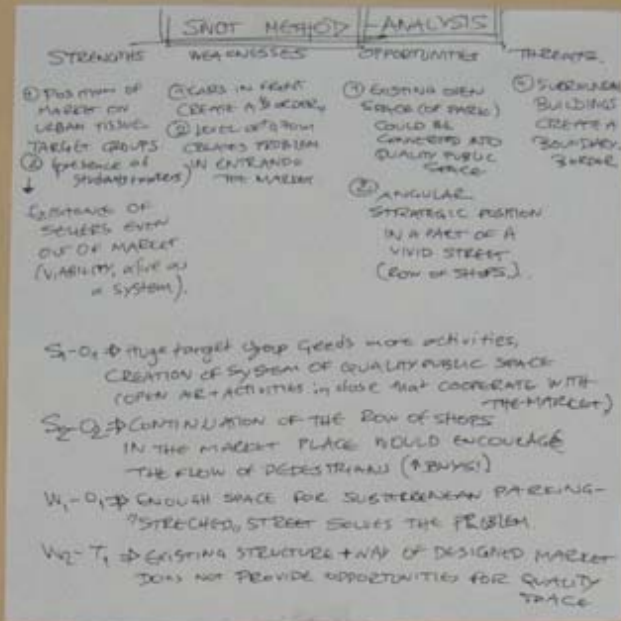 SWOT METHOD - ANALYSIS
STRENGTHS
① POSITION OF
MARKET ON
URBAN TISSUE
TARGET GROUPS
② (presence of
students
EXISTANCE OF
SELLERS EVEN
OUT OF MARKET
(VIABILITY, alive as
a system).
WEAKNESSES
① CARS IN FRONT
CREATE A BORDER,
② LEVEL OF
CREATES PROBLEM
IN ENTRANDO
THE MARKET
OPPORTUNITIES
① EXISTING OPEN
SPACE (OF PARK)
COULD BE
CONVERTED INTO
QUALITY PUBLIC
SPACE
② ANGULAR
STRATEGIC POSITION
IN A PART OF A
VIVID STREET
(ROW OF SHOPS).
THREATS
BUILDINGS
CREATE A
BOUNDARY,
BORDER
S1-O1 ⇒ Huge target group needs more activities,
CREATION OF SYSTEM OF QUALITY PUBLIC SPACE
(OPEN AIR + ACTIVITIES in close that COOPERATE WITH
THE MARKET)
S2-O2 ⇒ CONTINUATION OF THE ROW OF SHOPS
IN THE MARKET PLACE WOULD ENCOURAGE
THE FLOW OF PEDESTRIANS (↑ BUYS!)
W1-O1 ⇒ ENOUGH SPACE FOR SUBTERRENEAN PARKING-
"STRECHED" STREET SOLVES THE PROBLEM
W2-T1 ⇒ EXISTING STRUCTURE + WAY OF DESIGNED MARKET
DOES NOT PROVIDE OPPORTUNITIES FOR QUALITY
SPACE